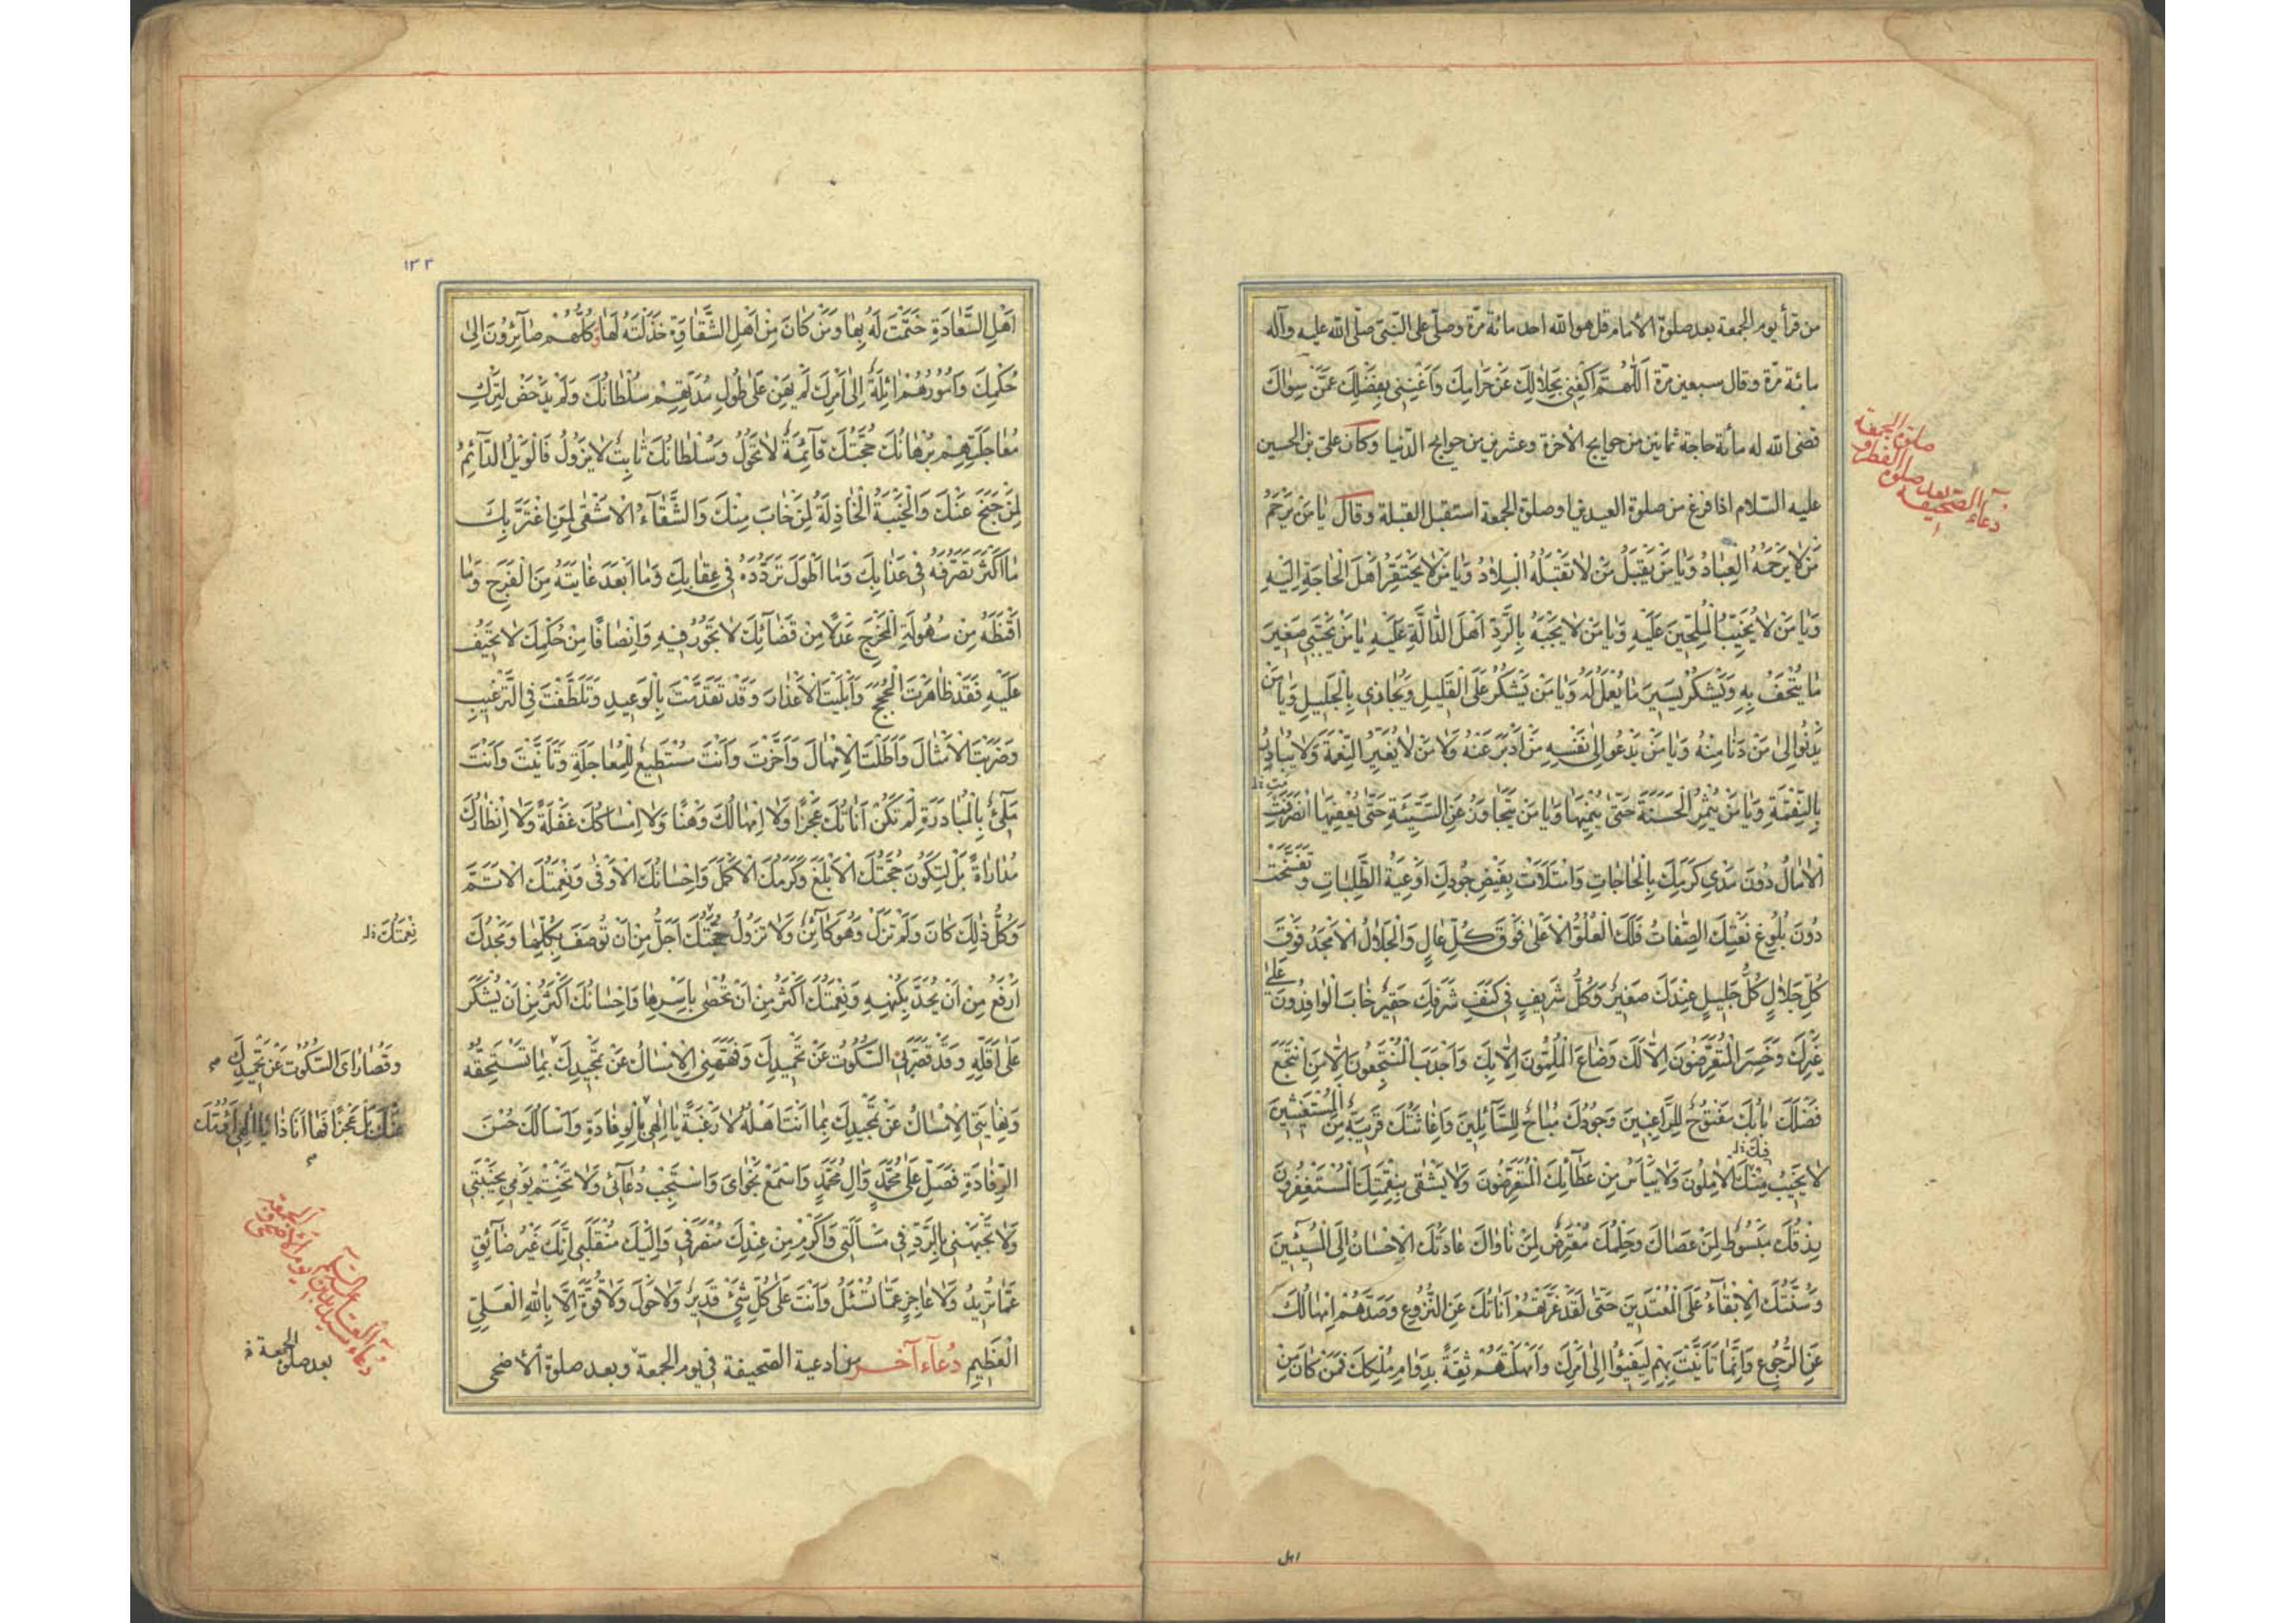 من قرأ يوم الجمعة بعد صلوة الامام قل هو الله احد مائة مرّة وصلّى على النّبيّ صلّى الله عليه وآله
مائة مرّة وقال سبعين مرّة اَللّٰهُمَّ اَكْفِنِي بِحَلَالِكَ عَنْ حَرَامِكَ وَاَغْنِنِي بِفَضْلِكَ عَمَّنْ سِوَاكَ
قضى الله له مائة حاجة ثمانين من حوايج الاخرة وعشرين من حوايج الدّنيا وكان علىّ بن الحسين
عليه السّلام اذا فرغ من صلوة العيدين او صلوة الجمعة استقبل القبلة وقال يَا مَنْ يَرْحَمُ
مَنْ لَا يَرْحَمُهُ الْعِبَادُ وَيَا مَنْ يَقْبَلُ مَنْ لَا تَقْبَلُهُ الْبِلَادُ وَيَا مَنْ لَا يَحْتَقِرُ اَهْلَ الْحَاجَةِ اِلَيْهِ
وَيَا مَنْ لَا يُخَيِّبُ الْمُلِحِّينَ عَلَيْهِ وَيَا مَنْ لَا يَجْبَهُ بِالرَّدِّ اَهْلَ الدَّالَّةِ عَلَيْهِ يَا مَنْ يَجْتَبِي صَغِيرَ
مَا يُتْحَفُ بِهِ وَيَشْكُرُ يَسِيرَ مَا يُعْمَلُ لَهُ وَيَا مَنْ يَشْكُرُ عَلَى الْقَلِيلِ وَيُجَازِي بِالْجَلِيلِ وَيَا مَنْ
يَدْنُوا اِلىٰ مَنْ دَنَا مِنْهُ وَيَا مَنْ يَدْعُو اِلىٰ نَفْسِهِ مَنْ اَدْبَرَ عَنْهُ وَيَا مَنْ لَا يُغَيِّرُ النِّعْمَةَ وَلَا يُبَادِرُ
بِالنَّقِمَةِ وَيَا مَنْ يُثْمِرُ الْحَسَنَةَ حَتّىٰ يُنْمِيَهَا وَيَا مَنْ يَتَجَاوَزُ عَنِ السَّيِّئَةِ حَتّىٰ يُعْفِيَهَا انْصَرَفَتِ
الْاٰمَالُ دُونَ مَدىٰ كَرَمِكَ بِالْحَاجَاتِ وَامْتَلَاَتْ بِفَيْضِ جُودِكَ اَوْعِيَةُ الطَّلِبَاتِ وَتَفَسَّخَتْ
دُونَ بُلُوغِ نَعْتِكَ الصِّفَاتُ فَلَكَ الْعُلُوُّ الْاَعْلىٰ فَوْقَ كُلِّ عَالٍ وَالْجَلَالُ الْاَمْجَدُ فَوْقَ
كُلِّ جَلَالٍ كُلُّ جَلِيلٍ عِنْدَكَ صَغِيرٌ وَكُلُّ شَرِيفٍ فِي كَنَفِ شَرَفِكَ حَقِيرٌ خَابَ الْوَافِدُونَ عَلىٰ
غَيْرِكَ وَخَسِرَ الْمُتَعَرِّضُونَ اِلَّا لَكَ وَضَاعَ الْمُلِمُّونَ اِلَّا بِكَ وَاَجْدَبَ الْمُنْتَجِعُونَ اِلَّا مَنِ انْتَجَعَ
فَضْلَكَ بَابُكَ مَفْتُوحٌ لِلرَّاغِبِينَ وَجُودُكَ مُبَاحٌ لِلسَّائِلِينَ وَاِغَاثَتُكَ قَرِيبَةٌ مِنَ الْمُسْتَغِيثِينَ
لَا يَخِيبُ مِنْكَ الْاٰمِلُونَ وَلَا يَيْاَسُ مِنْ عَطَائِكَ الْمُتَعَرِّضُونَ وَلَا يَشْقىٰ بِنِقْمَتِكَ الْمُسْتَغْفِرُونَ
رِزْقُكَ مَبْسُوطٌ لِمَنْ عَصَاكَ وَحِلْمُكَ مُعْتَرِضٌ لِمَنْ نَاوَاكَ عَادَتُكَ الْاِحْسَانُ اِلَى الْمُسِيئِينَ
وَسُنَّتُكَ الْاِبْقَاءُ عَلَى الْمُعْتَدِينَ حَتّىٰ لَقَدْ غَرَّتْهُمْ اَنَاتُكَ عَنِ النُّزُوعِ وَصَدَّهُمْ اِمْهَالُكَ
عَنِ الرُّجُوعِ وَاِنَّمَا تَاَنَّيْتَ بِهِمْ لِيَفِيئُوا اِلىٰ اَمْرِكَ وَاَمْهَلْتَهُمْ ثِقَةً بِدَوَامِ مُلْكِكَ فَمَنْ كَانَ مِنْ
صلوة الجمعة
دعاء الصحيفة بعد صلوة الفطر و
فيك خ ل
اهل
١٣٣
اَهْلِ السَّعَادَةِ خَتَمْتَ لَهُ بِهَا وَمَنْ كَانَ مِنْ اَهْلِ الشَّقَاوَةِ خَذَلْتَهُ لَهَا وَكُلُّهُمْ صَائِرُونَ اِلىٰ
حُكْمِكَ وَاُمُورُهُمْ اٰئِلَةٌ اِلىٰ اَمْرِكَ لَمْ يَهِنْ عَلىٰ طُولِ مُدَّتِهِمْ سُلْطَانُكَ وَلَمْ يَدْحَضْ لِتَرْكِ
مُعَاجَلَتِهِمْ بُرْهَانُكَ حُجَّتُكَ قَائِمَةٌ لَا تَحُولُ وَسُلْطَانُكَ ثَابِتٌ لَا يَزُولُ فَالْوَيْلُ الدَّائِمُ
لِمَنْ جَنَحَ عَنْكَ وَالْخَيْبَةُ الْخَاذِلَةُ لِمَنْ خَابَ مِنْكَ وَالشَّقَاءُ الْاَشْقىٰ لِمَنِ اغْتَرَّ بِكَ
مَا اَكْثَرَ تَصَرُّفَهُ فِي عَذَابِكَ وَمَا اَطْوَلَ تَرَدُّدَهُ فِي عِقَابِكَ وَمَا اَبْعَدَ غَايَتَهُ مِنَ الْفَرَجِ وَمَا
اَقْنَطَهُ مِنْ سُهُولَةِ الْمَخْرَجِ عَدْلًا مِنْ قَضَائِكَ لَا تَجُورُ فِيهِ وَاِنْصَافًا مِنْ حُكْمِكَ لَا تَحِيفُ
عَلَيْهِ فَقَدْ ظَاهَرْتَ الْحُجَجَ وَاَبْلَيْتَ الْاَعْذَارَ وَقَدْ تَقَدَّمْتَ بِالْوَعِيدِ وَتَلَطَّفْتَ فِي التَّرْغِيبِ
وَضَرَبْتَ الْاَمْثَالَ وَاَطَلْتَ الْاِمْهَالَ وَاَخَّرْتَ وَاَنْتَ مُسْتَطِيعٌ لِلْمُعَاجَلَةِ وَتَاَنَّيْتَ وَاَنْتَ
مَلِيٌّ بِالْمُبَادَرَةِ لَمْ تَكُنْ اَنَاتُكَ عَجْزًا وَلَا اِمْهَالُكَ وَهْنًا وَلَا اِمْسَاكُكَ غَفْلَةً وَلَا اِنْظَارُكَ
مُدَارَاةً بَلْ لِتَكُونَ حُجَّتُكَ الْاَبْلَغَ وَكَرَمُكَ الْاَكْمَلَ وَاِحْسَانُكَ الْاَوْفىٰ وَنِعْمَتُكَ الْاَتَمَّ
وَكُلُّ ذٰلِكَ كَانَ وَلَمْ تَزَلْ وَهُوَ كَائِنٌ وَلَا تَزُولُ حُجَّتُكَ اَجَلُّ مِنْ اَنْ تُوصَفَ بِكُلِّهَا وَمَجْدُكَ
اَرْفَعُ مِنْ اَنْ يُحَدَّ بِكُنْهِهِ وَنِعْمَتُكَ اَكْثَرُ مِنْ اَنْ تُحْصىٰ بِاَسْرِهَا وَاِحْسَانُكَ اَكْثَرُ مِنْ اَنْ يُشْكَرَ
عَلىٰ اَقَلِّهِ وَقَدْ قَصَّرَ بِيَ السُّكُوتُ عَنْ تَحْمِيدِكَ وَفَهَّهَنِي الْاِمْسَاكُ عَنْ تَمْجِيدِكَ بِمَا تَسْتَحِقُّهُ
وَنَهَانِي الْاِمْسَاكُ عَنْ تَمْجِيدِكَ بِمَا اَنْتَ اَهْلُهُ لَا رَغْبَةً يَا اِلٰهِي بِالْوِفَادَةِ وَاَسْاَلُكَ حُسْنَ
الرِّفَادَةِ فَصَلِّ عَلىٰ مُحَمَّدٍ وَاٰلِ مُحَمَّدٍ وَاسْمَعْ نَجْوَايَ وَاسْتَجِبْ دُعَائِي وَلَا تَخْتِمْ يَوْمِي بِخَيْبَتِي
وَلَا تَجْبَهْنِي بِالرَّدِّ فِي مَسْاَلَتِي وَاَكْرِمْ مِنْ عِنْدِكَ مُنْصَرَفِي وَاِلَيْكَ مُنْقَلَبِي اِنَّكَ غَيْرُ ضَائِقٍ
عَمَّا تُرِيدُ وَلَا عَاجِزٍ عَمَّا تُسْئَلُ وَاَنْتَ عَلىٰ كُلِّ شَيْءٍ قَدِيرٌ وَلَا حَوْلَ وَلَا قُوَّةَ اِلَّا بِاللهِ الْعَلِيِّ
الْعَظِيمِ دُعَاء آخر من ادعية الصّحيفة في يوم الجمعة وبعد صلوة الأضحى
نِعْمَتُكَ خ ل
وَقُصَارَايَ السُّكُوتُ عَنْ تَحْمِيدِكَ
عَنْكَ بَلْ عَجْزًا فَهَا اَنَا ذَا يَا اِلٰهِي اَؤُمُّكَ
بعد صلوة الجمعة